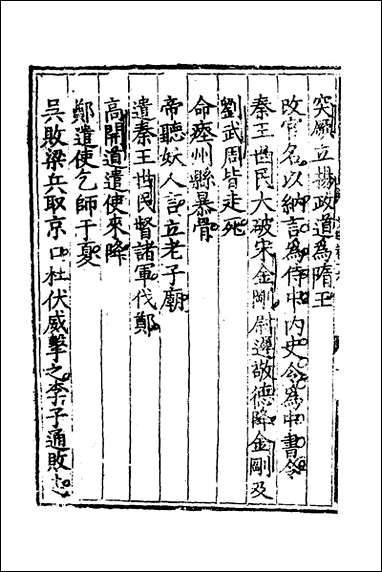 突厥立楊政道為隋王
改官名以納言為侍中內史令為中書令
秦王世民大破宋金剛尉遲敬德降金剛及
劉武周皆走死
命瘞州縣暴骨
帝聽妖人言立老子廟
遣秦王世民督諸軍伐鄭
高開道遣使來降
鄭遣使乞師于夏
吳敗梁兵取京口杜伏威擊之李子通敗走